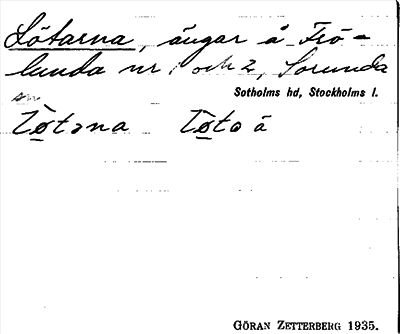 Lötarna, ängar å Frö-
landa nr 1 och 2, Sorunda
sn
Sotholms hd, Stockholms l.
Lø̀tǝna Lø̀ta ä
GÖRAN ZETTERBERG 1935.